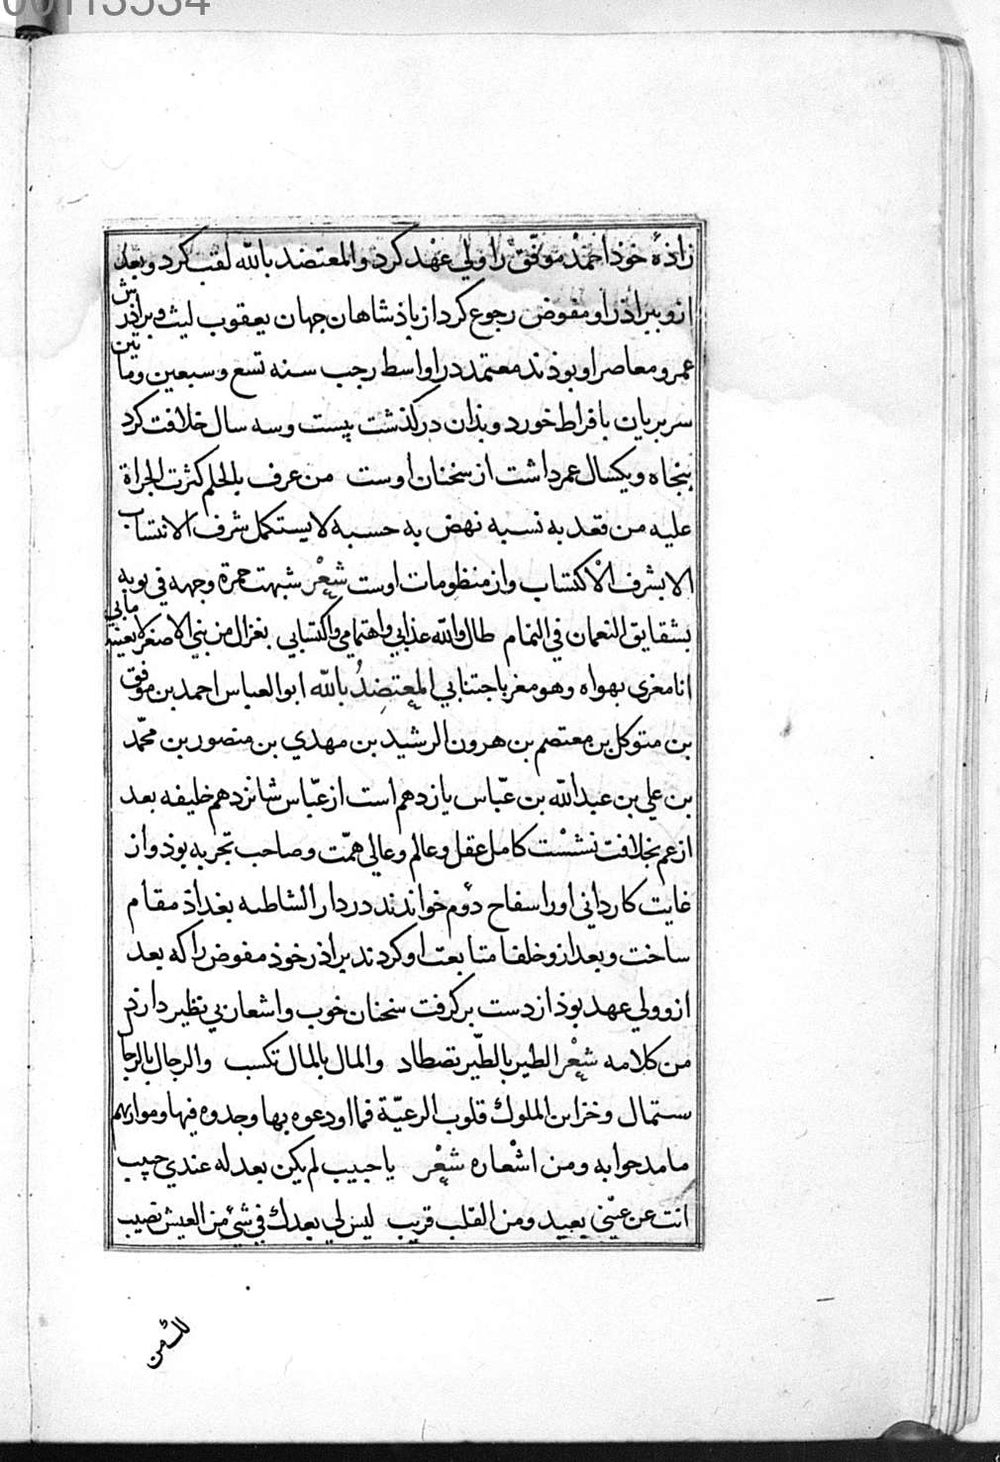 00113534
زاذهٔ خوذ احمد موفّق را ولي عهد كرد و المعتضد بالله لقب كرد و بعد
ازو ببراذر او مفوض رجوع كرد از پاذشاهان جهان يعقوب ليث و براذرش
عمرو معاصر او بوذند معتمد در اواسط رجب سنه تسع و سبعين و ماتين
سر بريان بافراط خورد و بذان در كذشت بيست و سه سال خلافت كرد
پنجاه و يكسال عمر داشت از سخنان اوست من عرف بالحلم كثرت الجراة
عليه من قعد به نسبه نهض به حسبه لا يستكمل شرف الانتساب
الا بشرف الاكتساب و از منظومات اوست شعْر شبهت حمرة وجهه في ثوبه
بشقايق النعمان في التمام طال والله عذابي واهتمامي واكتسابي بغزال من بني الاصفر لا يعنيه مابي
انا مغرى بهواه وهو مغر باجتنابي المعتضدُ بالله ابو العباس احمد بن موفق
بن متوكل بن معتصم بن هرون الرشيد بن مهدي بن منصور بن محمّد
بن علي بن عبد الله بن عبّاس يازدهم است از عبّاس شانزدهم خليفه بعد
از عم بخلافت نشسْت كامل عقل و عالم و عالي همّت و صاحب تجربه بوذ و از
غايت كارداني او را سفاح دوم خواندند در دار الشاطبه بغداذ مقام
ساخت و بعد ازو خلفا متابعت او كردند براذر خوذ مفوض را كه بعد
ازو ولي عهد بوذ از دست بركرفت سخنان خوب و اشعار بي نظير دارد
من كلامه شعْر الطير بالطّير تصطاد والمال بالمال تكسب والرجال بالرجا
ستمال وخزاين الملوك قلوب الرعيّة فما اودعوه بها وجدوه فيها
ما مد جوابه و من اشعاره شعْر يا حبيب لم يكن بعد له عندي حبيب
انت عن عيني بعيد ومن القلب قريب ليس لي بعدك في شيْ من العيش نصيب
لك من